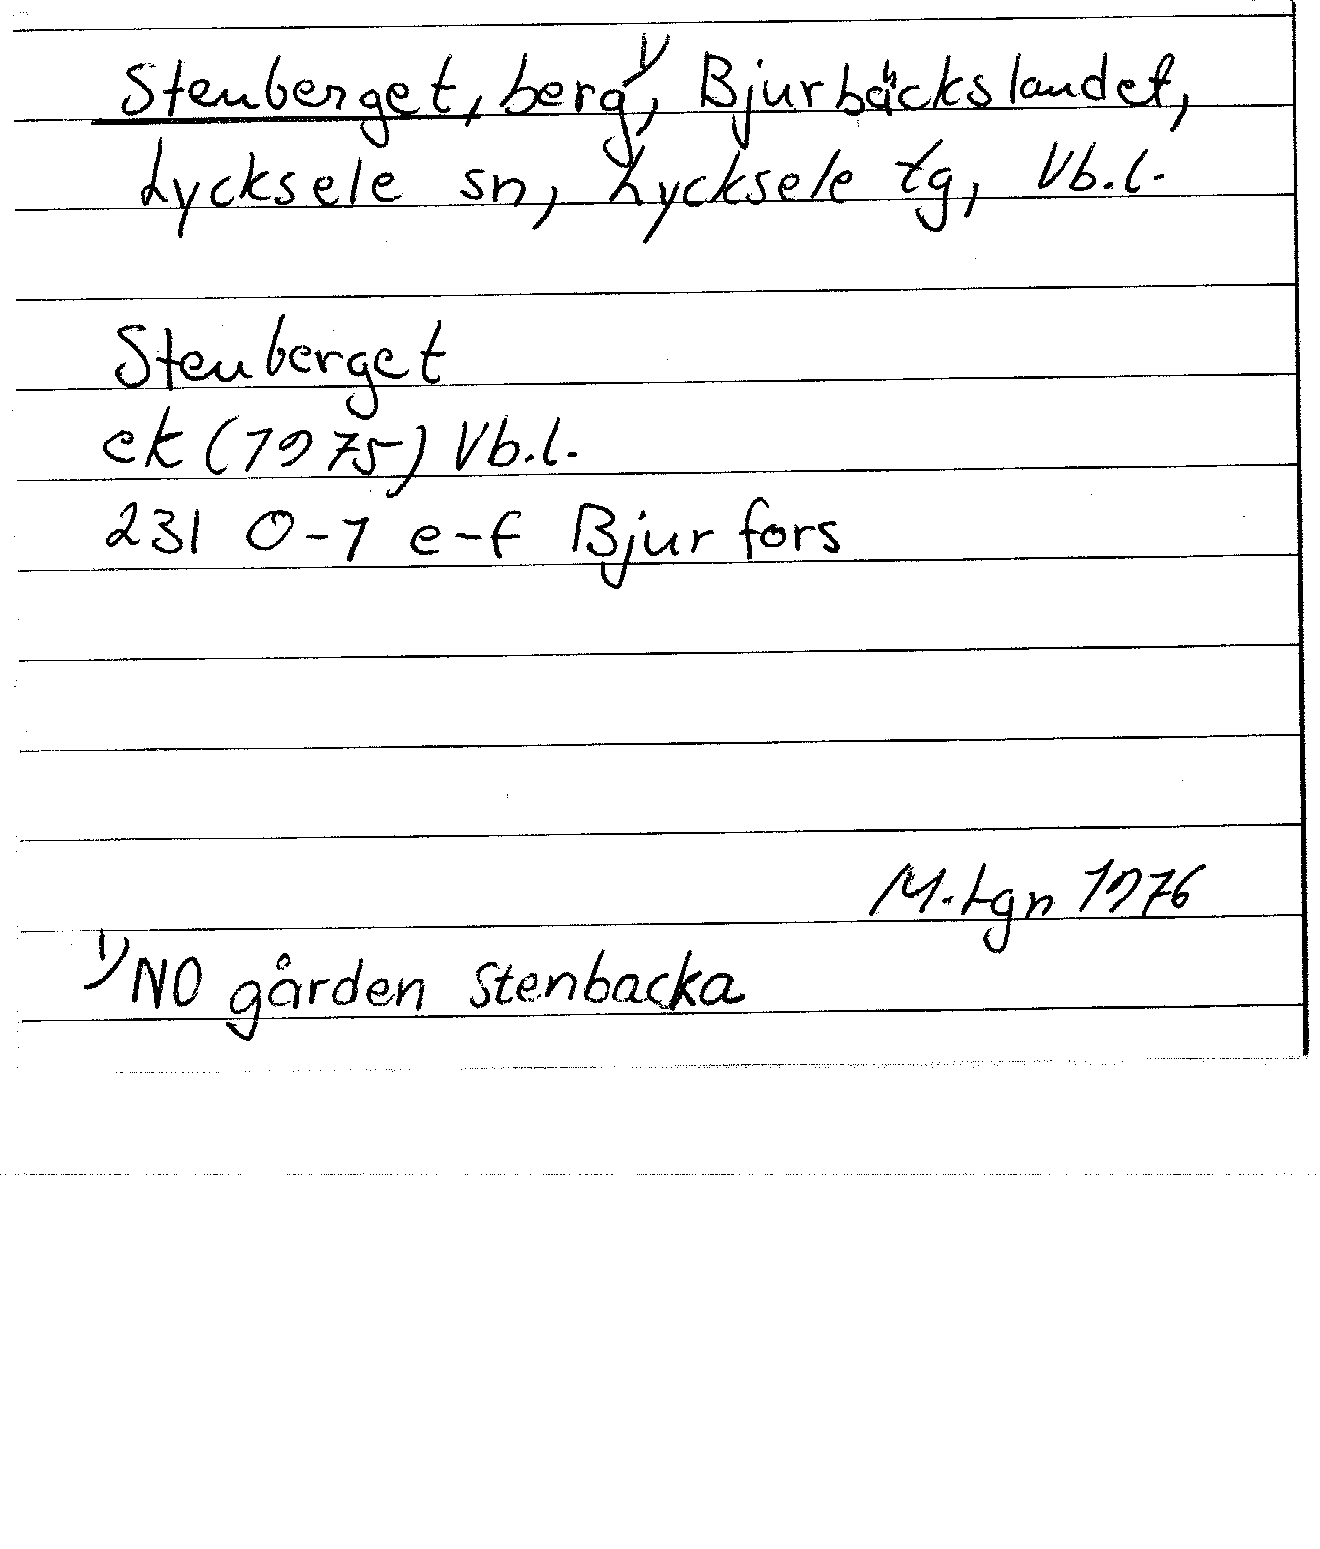 Stenberget, berg¹⁾, Bjurbäckslandet,
Lycksele sn, Lycksele tg, Vb.l.
Stenberget
ek (1975) Vb.l.
231 0-1 e-f Bjurfors
M. Lgn 1976
¹⁾ NO gården Stenbacka